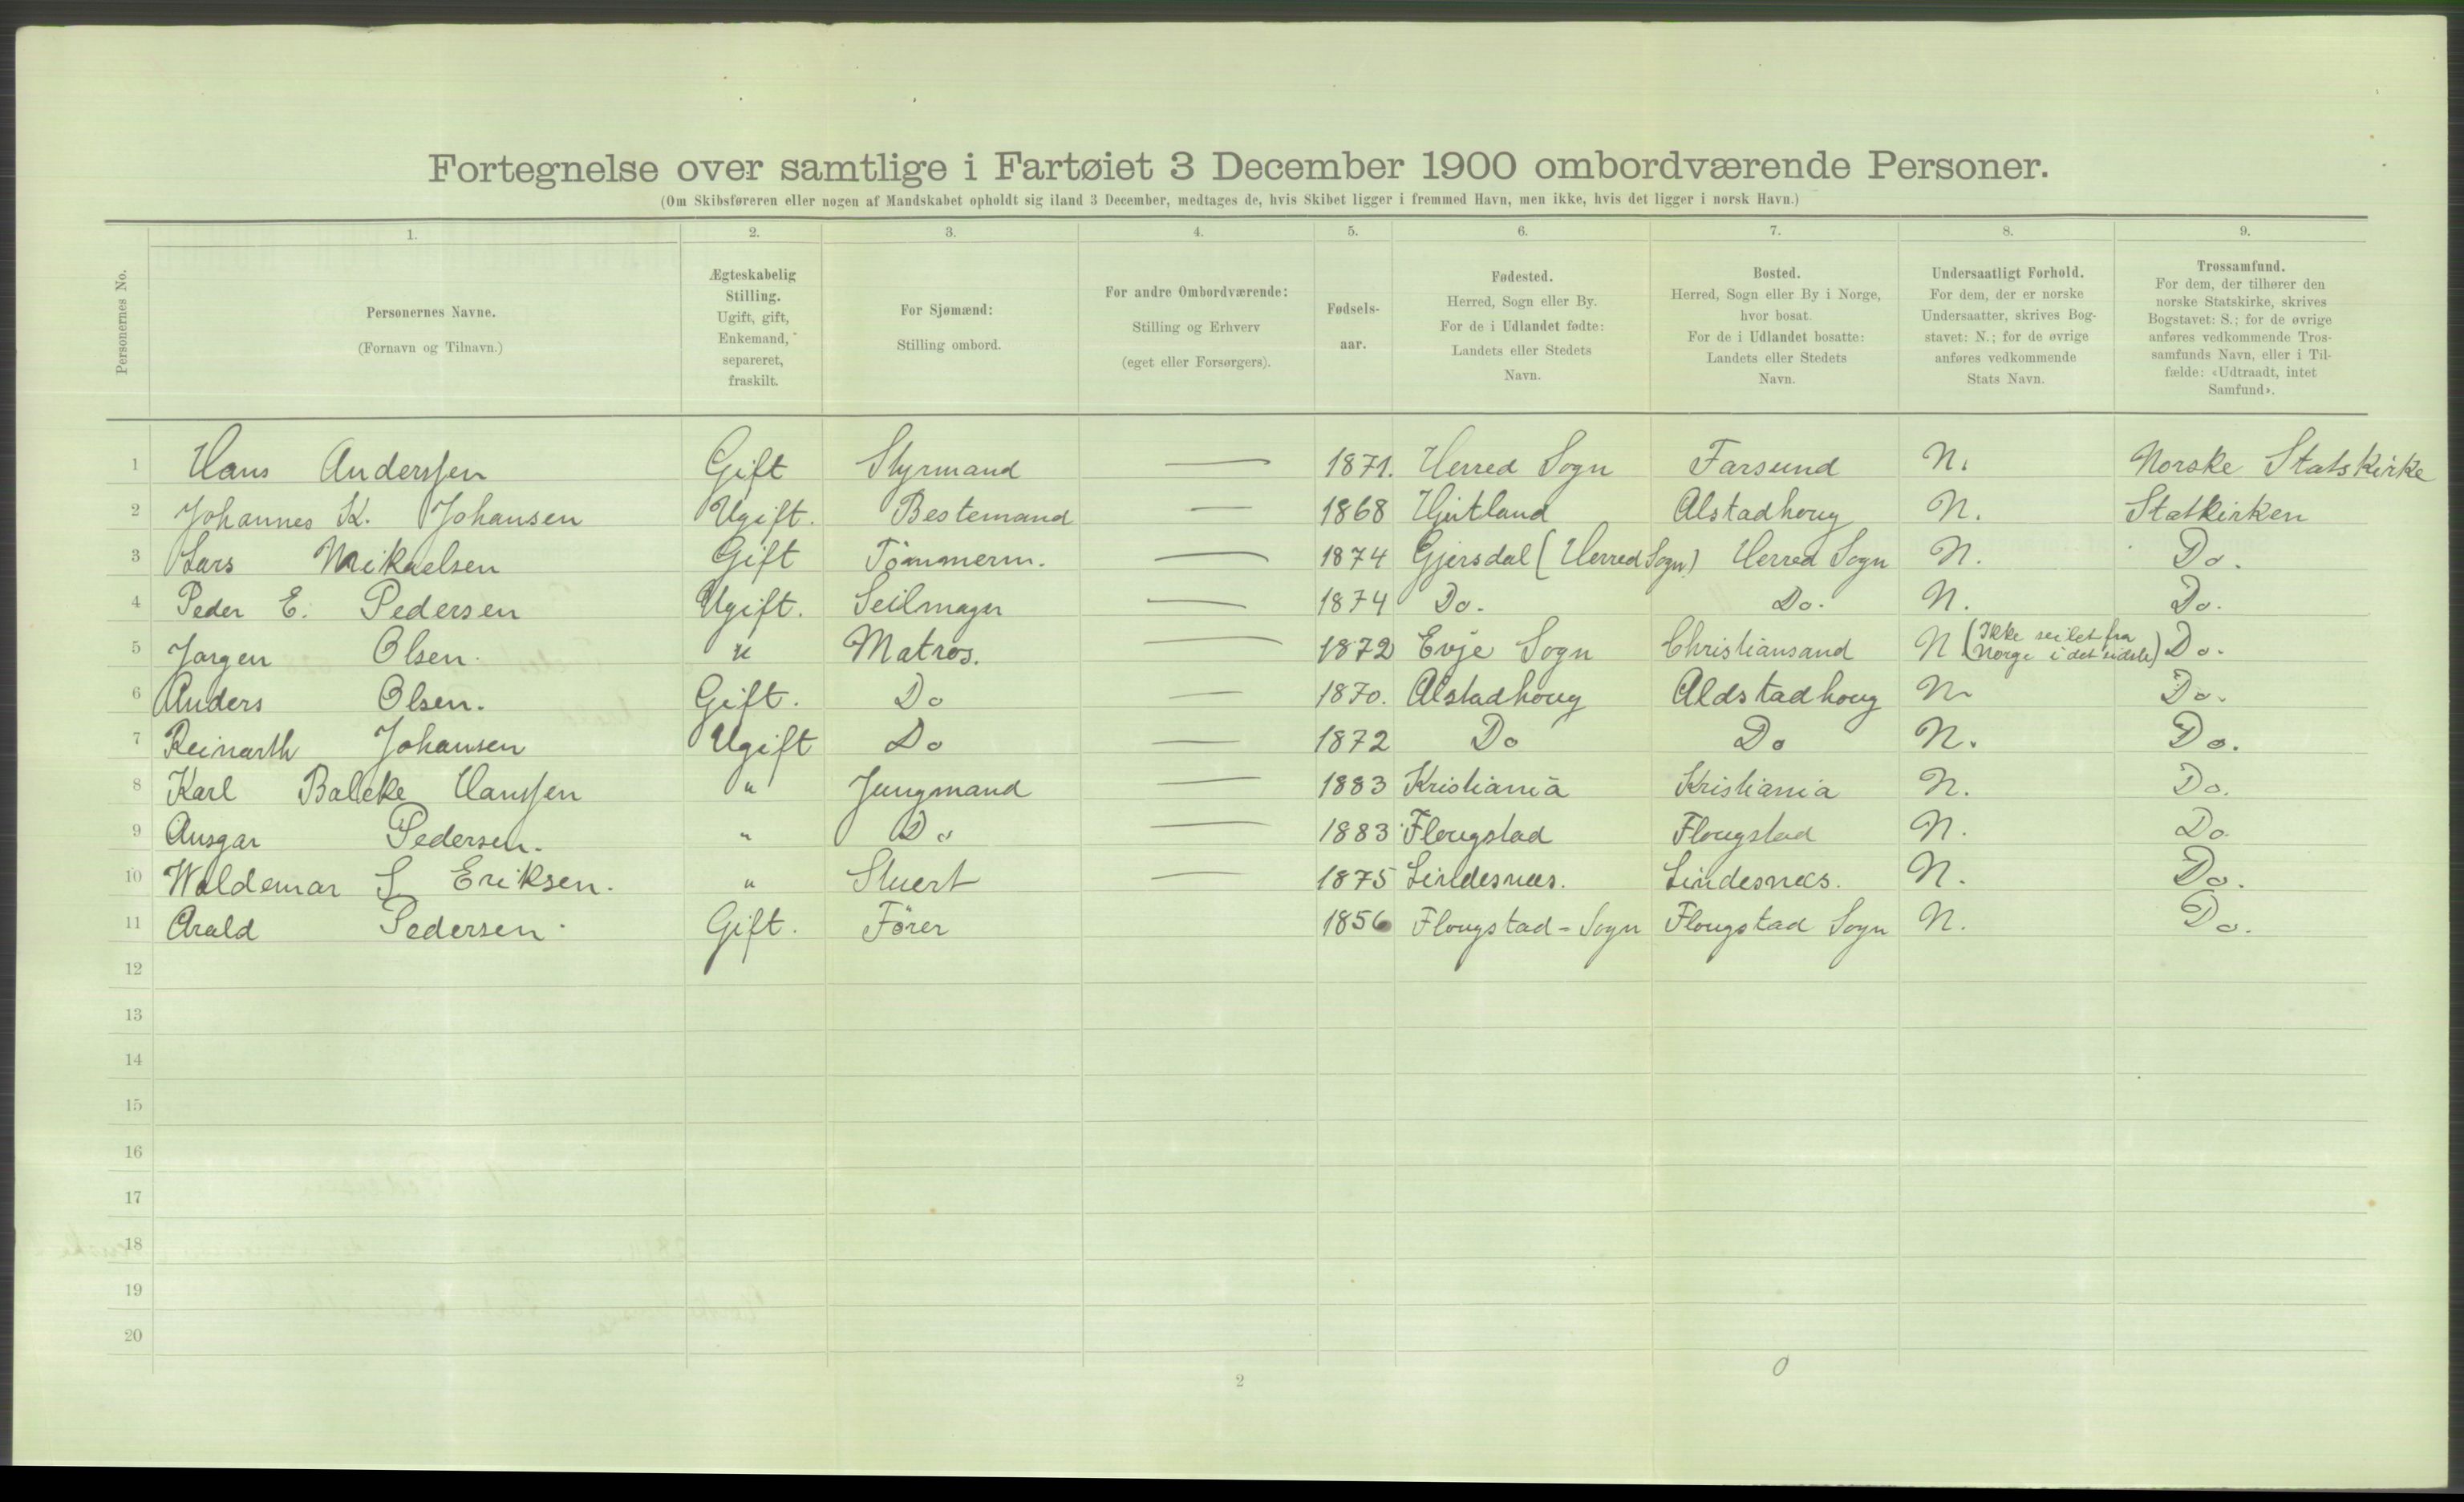 Fortegnelse over samtlige i Fartøiet 3 December 1900 ombordværende Personer.
(Om Skibsføreren eller nogen af Mandskabet opholdt sig iland 3 December, medtages de, hvis Skibet ligger i fremmed Havn, men ikke, hvis det ligger i norsk Havn.)
Personernes No.
1. 2. 3. 4. 5. 6. 7. 8. 9.
Personernes Navne.
(Fornavn og Tilnavn.)
Ægteskabelig
Stilling.
Ugift, gift,
Enkemand,
separeret,
fraskilt.
For Sjømænd:
Stilling ombord.
For andre Ombordværende:
Stilling og Erhverv
(eget eller Forsørgers).
Fødsels-
aar.
Fødested.
Herred, Sogn eller By.
For de i Udlandet fødte:
Landets eller Stedets
Navn.
Bosted.
Herred, Sogn eller By i Norge,
hvor bosat.
For de i Udlandet bosatte:
Landets eller Stedets
Navn.
Undersaatligt Forhold.
For dem, der er norske
Undersaatter, skrives Bog-
stavet: N.; for de øvrige
anføres vedkommende
Stats Navn.
Trossamfund.
For dem, der tilhører den
norske Statskirke, skrives
Bogstavet: S.; for de øvrige
anføres vedkommende Tros-
samfunds Navn, eller i Til-
fælde: «Udtraadt, intet
Samfund».
1 Hans Anderssen Gift Styrmand — 1871. Herred Sogn Farsund N. Norske Statskirke
2 Johannes K. Johansen Ugift. Bestemand — 1868 Hjitland Alstadhoug N. Statkirken
3 Lars Mikaelsen Gift Tömmerm. — 1874 Gjersdal (Herred Sogn) Herred Sogn N. Do.
4 Peder E. Pedersen Ugift. Seilmager — 1874 Do. Do. N. Do.
5 Jørgen Olsen. " Matros. — 1872 Evje Sogn Christiansand N (Ikke seilet fra Norge i det sidste) Do.
6 Anders Olsen. Gift. Do — 1870. Alstadhoug Aldstadhoug N. Do.
7 Reinarth Johansen Ugift Do — 1872 Do Do N. Do.
8 Karl Balcke Hanssen " Jungmand — 1883 Kristiania Kristiania N. Do.
9 Ansgar Pedersen. " Do — 1883 Flougstad Flougstad N. Do.
10 Waldemar S Eriksen. " Stuert — 1875 Lindesnæs. Lindesnæs. N. Do.
11 Arald Pedersen. Gift. Förer 1856 Flougstad-Sogn Flougstad Sogn N. Do.
12
13
14
15
16
17
18
19
20
2
0